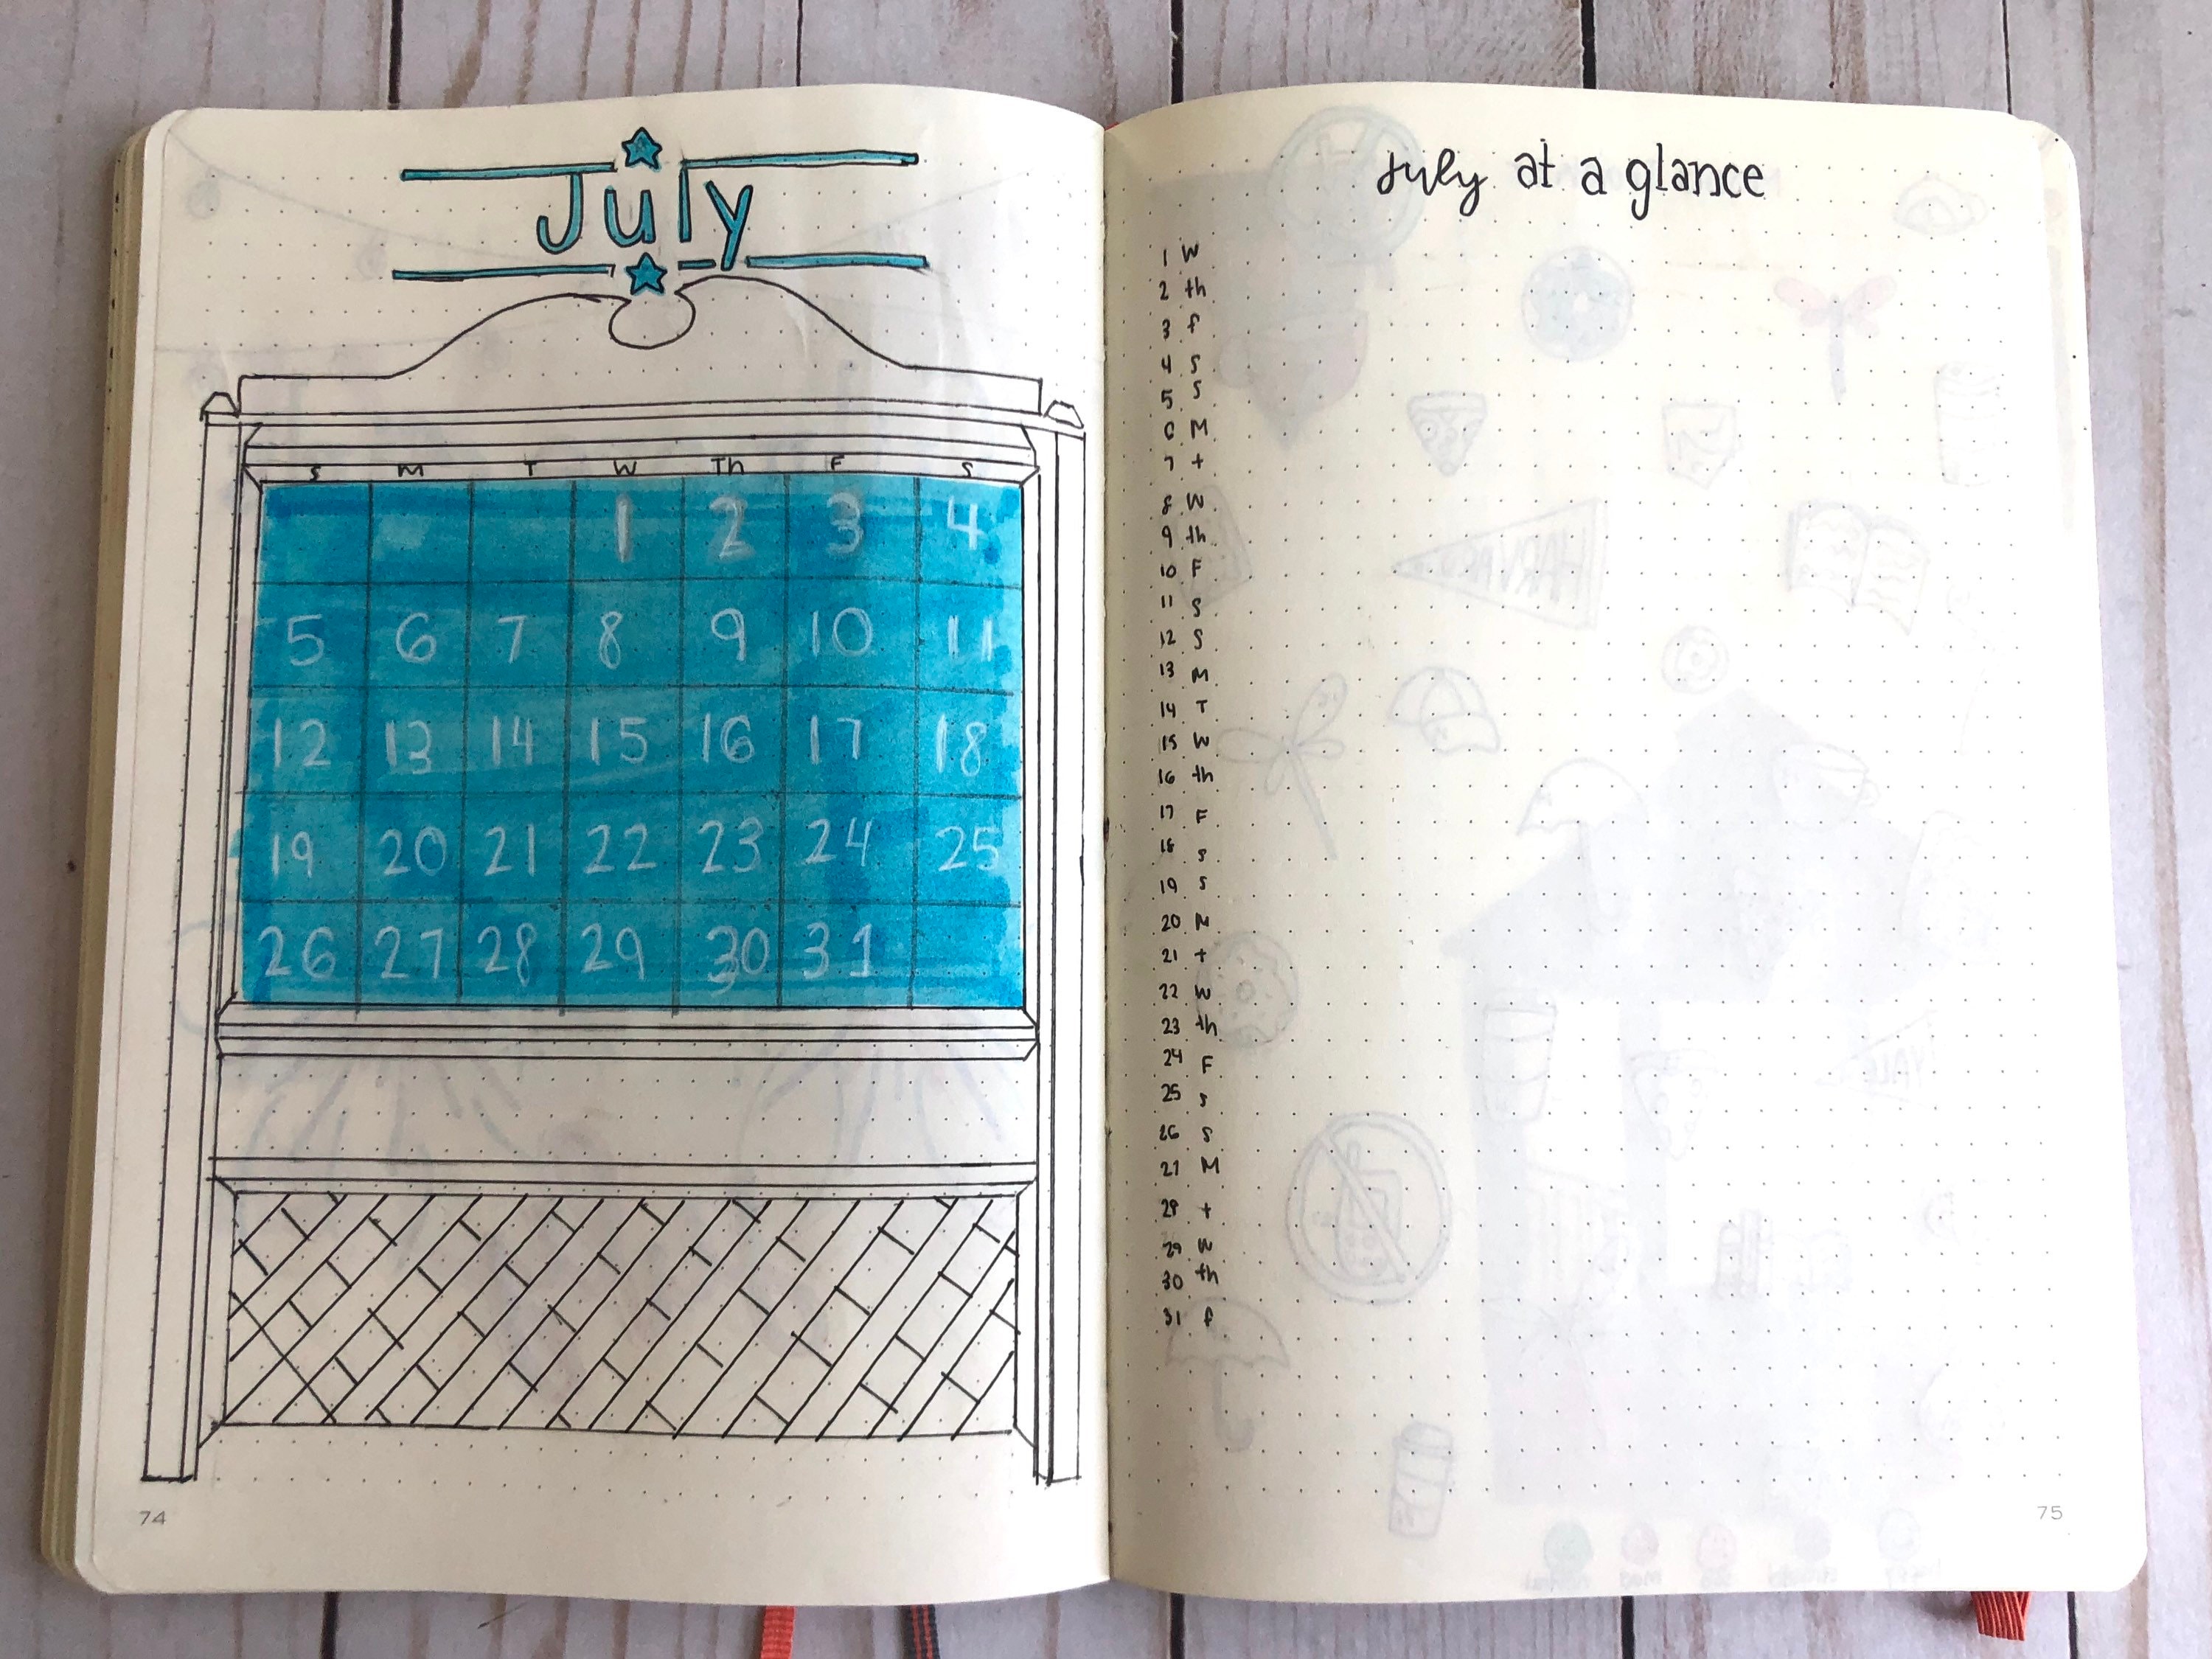 July
S M T W Th F S
1 2 3 4
5 6 7 8 9 10 11
12 13 14 15 16 17 18
19 20 21 22 23 24 25
26 27 28 29 30 31
74
July at a glance
1 W
2 th
3 f
4 S
5 S
6 M
7 t
8 W
9 th
10 F
11 S
12 S
13 M
14 T
15 W
16 th
17 F
18 S
19 S
20 M
21 t
22 W
23 th
24 F
25 S
26 S
27 M
28 t
29 W
30 th
31 f
75